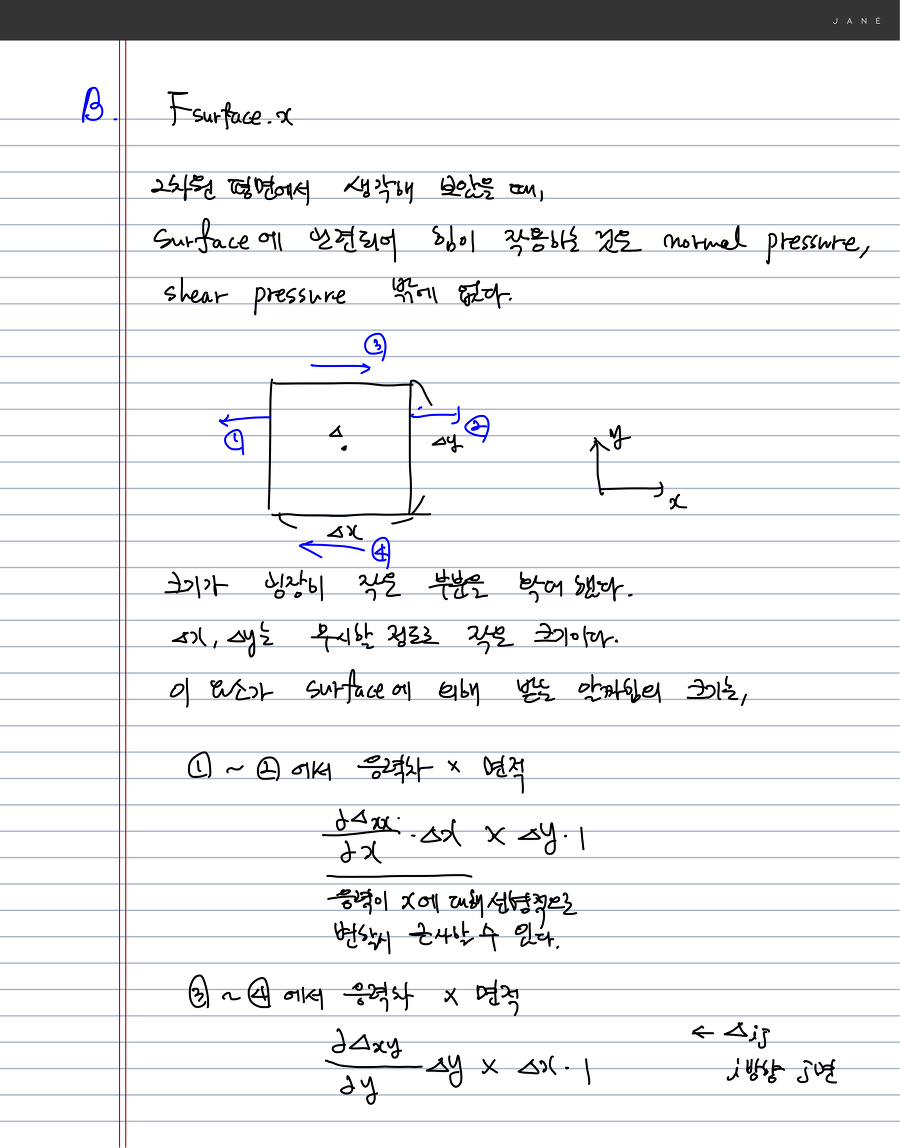 JANE
B. Fsurface.x
2차원 평면에서 생각해 보았을 때,
Surface에 의해 힘이 작용하는 것은 normal pressure,
shear pressure 밖에 없다.
③
① Δ ② Δy y
x
Δx
④
크기가 굉장히 작은 부분을 했다.
Δx, Δy는 무시할 정도로 작은 크기이다.
이 요소가 surface에 의해 받는 알짜힘의 크기는,
① ~ ② 에서 응력차 × 면적
∂Δxx/∂x · Δx × Δy · 1
응력이 x에 대해 선형적으로
변화시 근사할 수 있다.
③ ~ ④ 에서 응력차 × 면적
∂Δxy/∂y Δy × Δx · 1
← Δij
i방향 j면